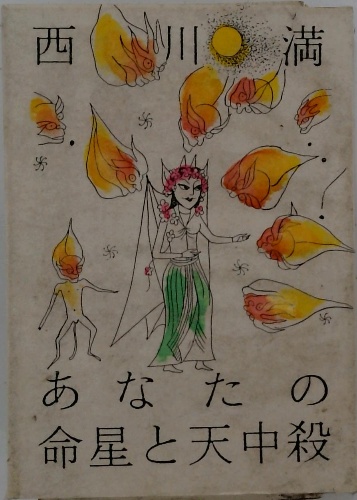 西川満
あなたの
命星と天中殺